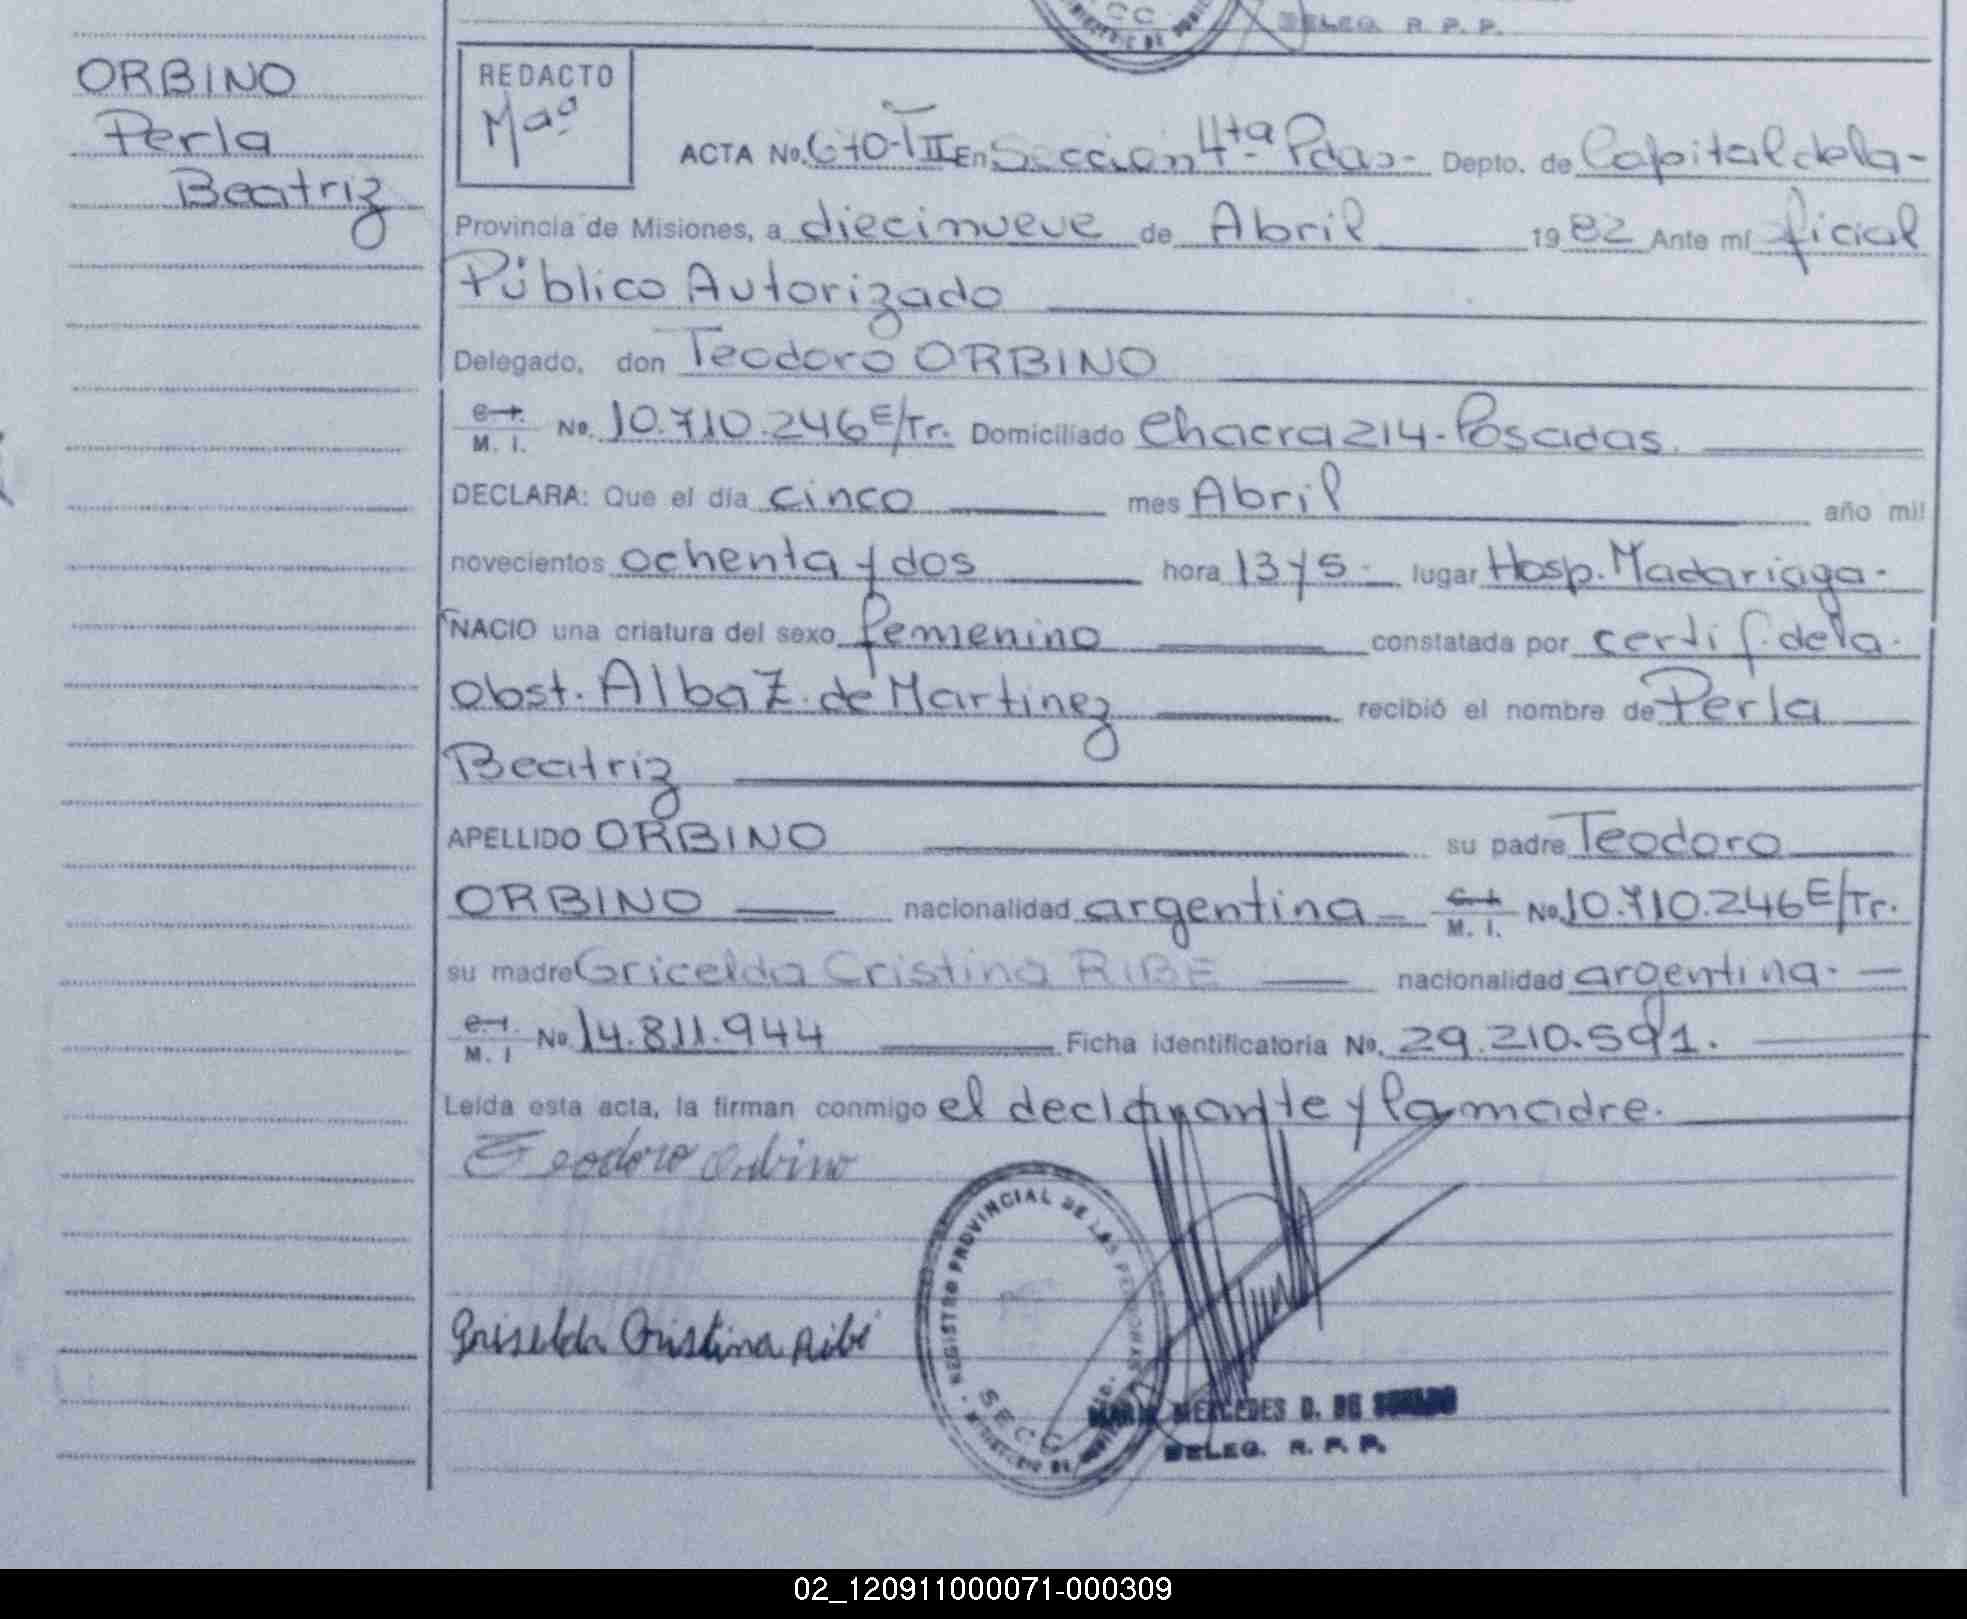 DELEG. R. P. P.
ORBINO
Perla
Beatriz
REDACTO
Mª
ACTA No. 670-III En Sección 4ta Pdas- Depto. de Capital de la-
Provincia de Misiones, a diecinueve de Abril 1982 Ante mí oficial
Público Autorizado
Delegado, don Teodoro ORBINO
C. I. M. I. No. 10.710.246 E/Tr. Domiciliado Chacra 214-Posadas.
DECLARA: Que el día cinco mes Abril año mil
novecientos ochenta y dos hora 13 y 5- lugar Hosp. Madariaga-
NACIO una criatura del sexo femenino constatada por certif. de la-
obst. Alba Z. de Martinez recibió el nombre de Perla
Beatriz
APELLIDO ORBINO su padre Teodoro
ORBINO nacionalidad argentina - C. I. M. I. No. 10.710.246 E/Tr.
su madre Gricelda Cristina RIBE nacionalidad argentina. -
C. I. M. I No 14.811.944 Ficha identificatoria No. 29.210.591.
Leida esta acta, la firman conmigo el declarante y la madre.
Teodoro Orbino
REGISTRO PROVINCIAL DE LAS PERSONAS
SECC
Griselda Cristina Ribé
MERCEDES D. DE
DELEG. R. P. P.
02_120911000071-000309